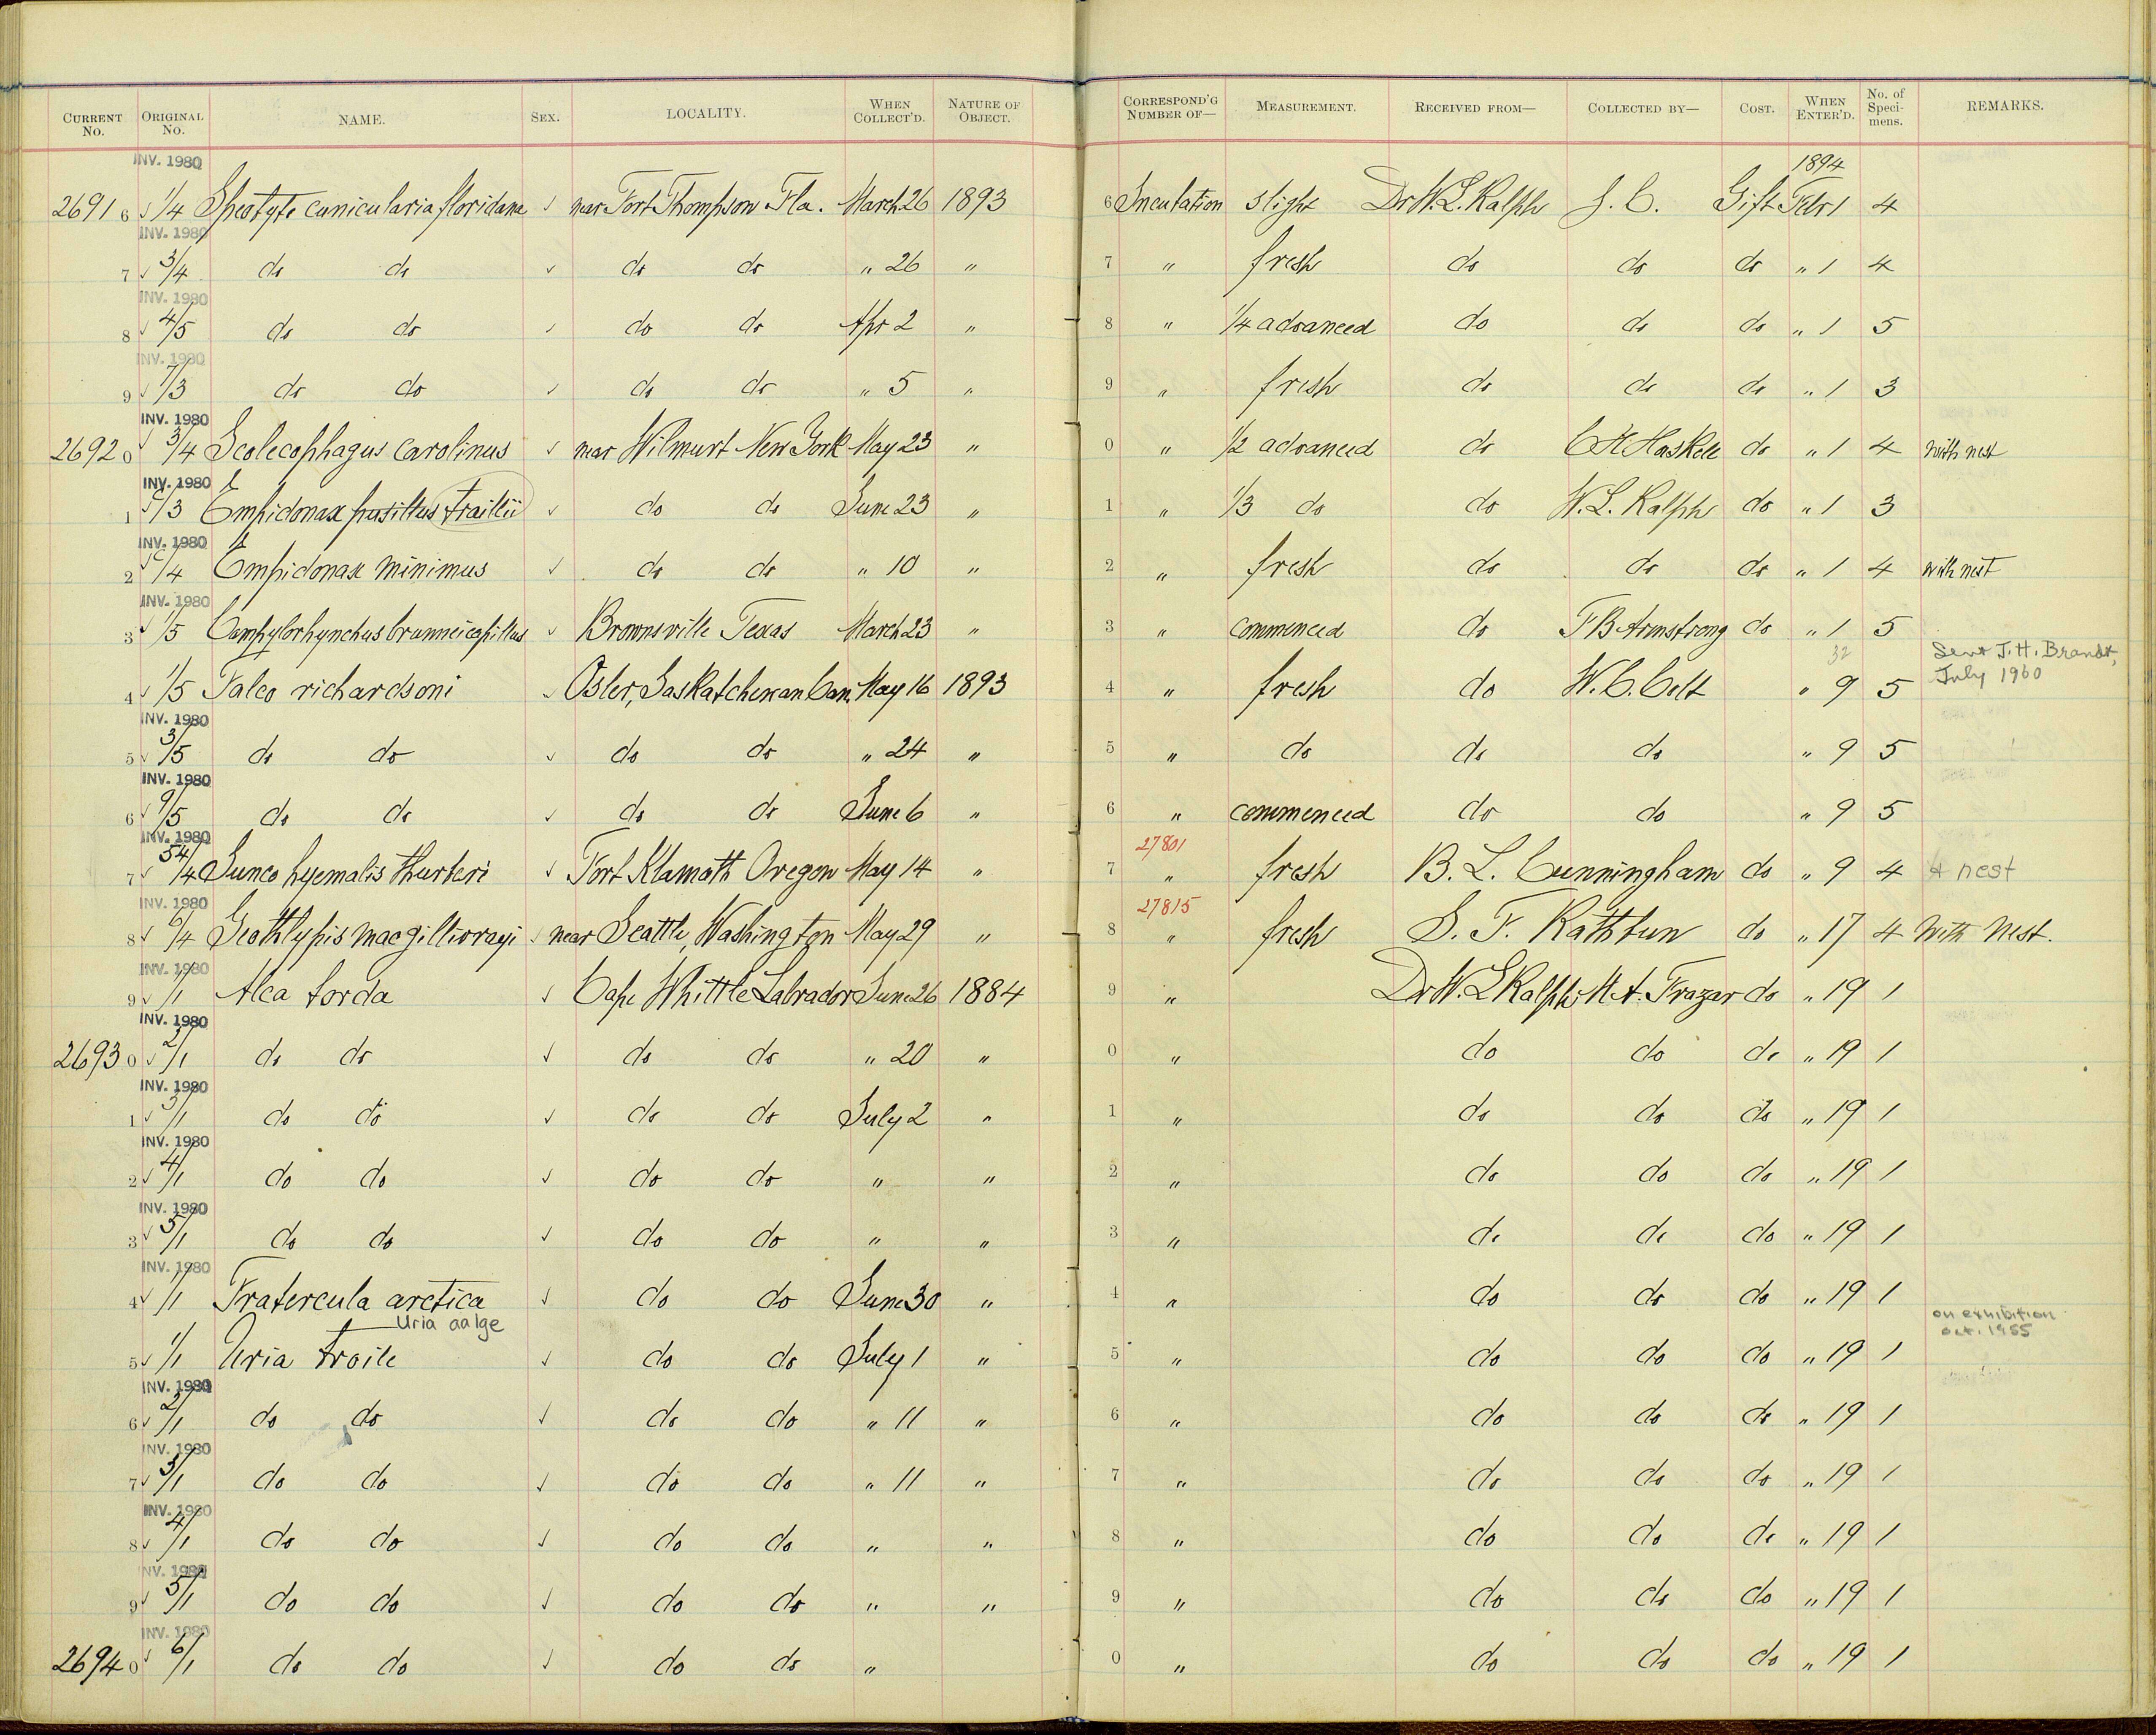 CURRENT No. ORIGINAL No. NAME. SEX. LOCALITY. WHEN COLLECT'D. NATURE OF OBJECT. CORRESPOND'G NUMBER OF— MEASUREMENT. RECEIVED FROM— COLLECTED BY— COST. WHEN ENTER'D. No. of Speci-mens. REMARKS.
INV. 1980 1894
2691 6 √ 1/4 Speotyto cunicularia floridana √ near Fort Thompson Fla. March 26 1893 6 Incubation slight Dr W. L. Ralph J. C. Gift Febr 1 4
INV. 1980
7 √ 3/4 do do √ do do " 26 " 7 " fresh do do do " 1 4
INV. 1980
8 √ 4/5 do do √ do do Apr 2 " 8 " 1/4 advanced do do do " 1 5
INV. 1980
9 √ 7/3 do do √ do do " 5 " 9 " fresh do do do " 1 3
INV. 1980
2692 0 √ 3/4 Scolecophagus carolinus √ near Wilmurt New York May 23 " 0 " 1/2 advanced do C H Haskell do " 1 4 with nest
INV. 1980
1 √ /3 Empidonax pusillus traillii √ do do June 23 " 1 " 1/3 do do W. L. Ralph do " 1 3
INV. 1980
2 √ /4 Empidonax minimus √ do do " 10 " 2 " fresh do do do " 1 4 with nest
INV. 1980
3 √ 1/5 Campylorhynchus brunneicapillus √ Brownsville Texas March 23 " 3 " commenced do F B Armstrong do " 1 5
32 Sent J. H. Brandt,
4 √ 1/5 Falco richardsoni √ Osler, Saskatchewan Can. May 16 1893 4 " fresh do W. C. Colt " 9 5 July 1960
INV. 1980
5 √ 3/5 do do √ do do " 24 " 5 " do do do " 9 5
INV. 1980
6 √ 9/5 do do √ do do June 6 " 6 " commenced do do " 9 5
INV. 1980 27801
7 √ 54/4 Junco hyemalis thurberi √ Fort Klamath Oregon May 14 " 7 " fresh B. L. Cunningham do " 9 4 + nest
INV. 1980 27815
8 √ 6/4 Geothlypis macgillivrayi √ near Seattle, Washington May 29 " 8 " fresh S. F. Rathbun do " 17 4 With Nest.
INV. 1980
9 √ 1/1 Alca torda √ Cape Whittle Labrador June 26 1884 9 " Dr W. L Ralph M. A. Frazar do " 19 1
INV. 1980
2693 0 √ 2/1 do do √ do do " 20 " 0 " do do do " 19 1
INV. 1980
1 √ 3/1 do do √ do do July 2 " 1 " do do do " 19 1
INV. 1980
2 √ 4/1 do do √ do do " " 2 " do do do " 19 1
INV. 1980
3 √ 5/1 do do √ do do " " 3 " do do do " 19 1
INV. 1980
4 √ 1/1 Fratercula arctica √ do do June 30 " 4 " do do do " 19 1
Uria aalge on exhibition
oct. 1955
5 √ 1/1 Uria troile √ do do July 1 " 5 " do do do " 19 1
INV. 1980
6 √ 2/1 do do √ do do " 11 " 6 " do do do " 19 1
INV. 1980
7 √ 3/1 do do √ do do " 11 " 7 " do do do " 19 1
INV. 1980
8 √ 4/1 do do √ do do " " 8 " do do do " 19 1
INV. 1980
9 √ 5/1 do do √ do do " " 9 " do do do " 19 1
INV. 1980
2694 0 √ 6/1 do do √ do do " 0 " do do do " 19 1